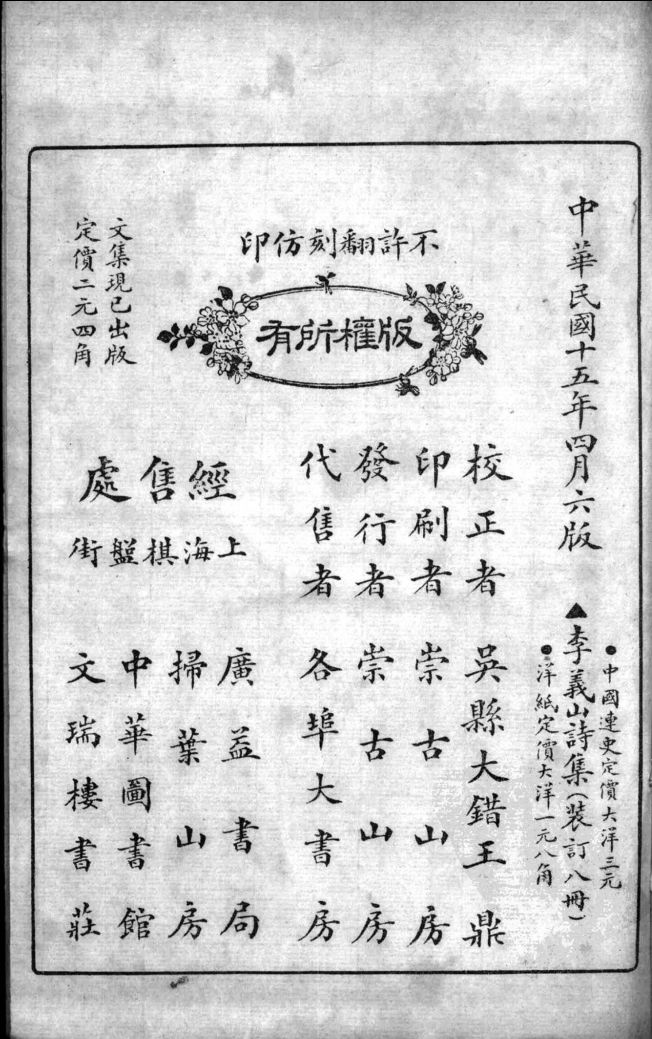 中華民國十五年四月六版
▲李義山詩集(裝訂八冊)
●中國連史定價大洋三元
●洋紙定價大洋一元八角
不許翻刻仿印
版權所有
文集現已出版
定價二元四角
校正者 吳縣大錯王鼎
印刷者 崇古山房
發行者 崇古山房
代售者 各埠大書房
經售處
上海棋盤街
廣益書局
掃葉山房
中華圖書館
文瑞樓書莊